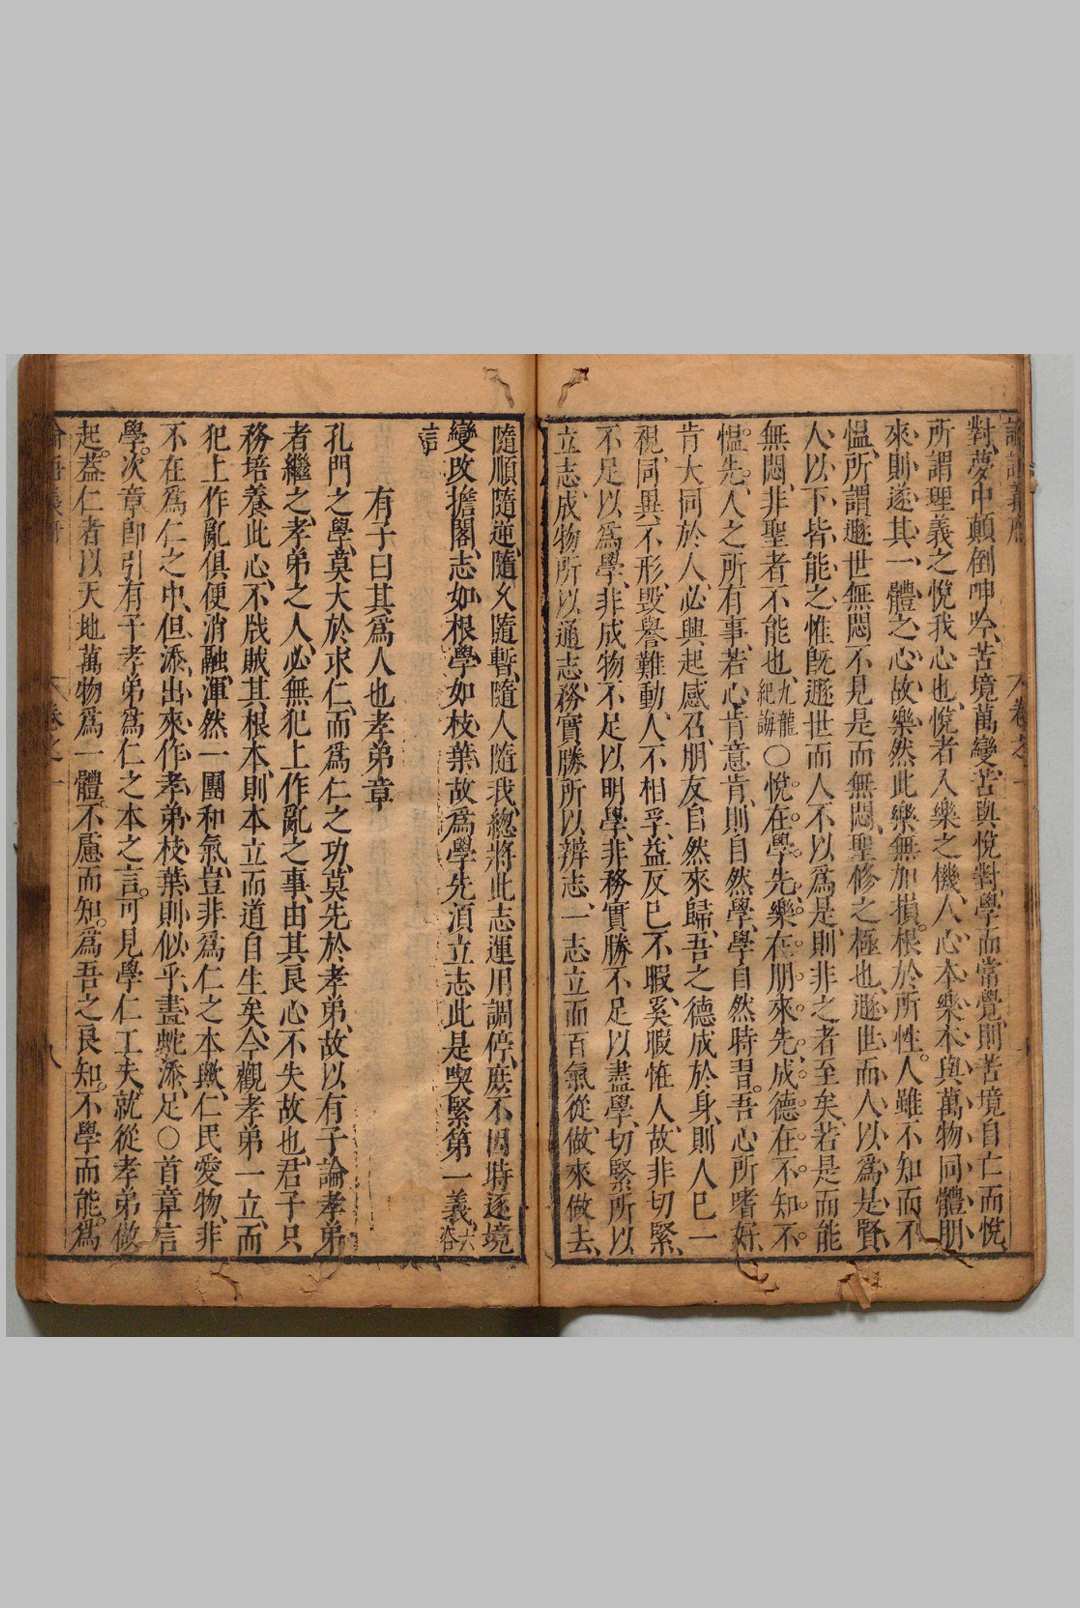 對夢中顛倒呻吟苦境萬變苦與悅對學而常覺則苦境自亡而悅
所謂理義之悅我心也悅者入樂之機人心本樂本與萬物同體朋
來則遂其一體之心故樂然此樂無加損根於所性人雖不知而不
慍所謂遯世無悶不見是而無悶聖修之極也遯世而人以為是賢
人以下皆能之惟既遯世而人不以為是則非之者至矣若是而能
無悶非聖者不能也九龍紀誨〇悅在學先樂在朋來先成德在不知不
慍先人之所有事若心肯意肯則自然學學自然時習吾心所嗜好
肯大同於人必興起感召朋友自然來歸吾之德成於身則人已一
視同異不形毀譽難動人不相孚益反已不暇奚暇惟人故非切緊
不足以為學非成物不足以明學非務實勝不足以盡學切緊所以
立志成物所以通志務實勝所以辨志一志立而百氣從做來做去
隨順隨逆隨久隨暫隨人隨我總將此志運用調停庶不因時逐境
變改擔閣志如根學如枝葉故為學先須立志此是喫緊第一義六答
言
有子曰其為人也孝弟章
孔門之學莫大於求仁而為仁之功莫先於孝弟故以有子論孝弟
者繼之孝弟之人必無犯上作亂之事由其良心不失故也君子只
務培養此心不戕賊其根本則本立而道自生矣今觀孝弟一立而
犯上作亂俱便消融渾然一團和氣豈非為仁之本歟仁民愛物非
不在為仁之中但添出來作孝弟枝葉則似乎畫蛇添足〇首章言
學次章卽引有子孝弟為仁之本之言可見學仁工夫就從孝弟做
起葢仁者以天地萬物為一體不慮而知為吾之良知不學而能為
卷之一 八